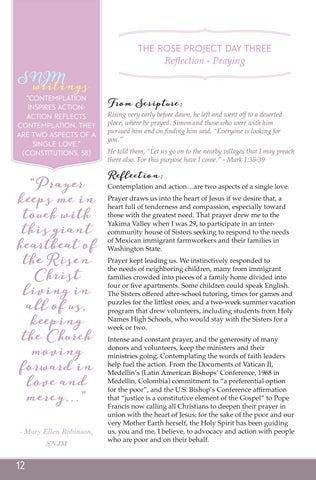 THE ROSE PROJECT DAY THREE
Reflection - Praying
SNJM
writings
"CONTEMPLATION
INSPIRES ACTION;
ACTION REFLECTS
CONTEMPLATION. THEY
ARE TWO ASPECTS OF A
SINGLE LOVE."
(CONSTITUTIONS, 58)
"Prayer
keeps me in
touch with
this giant
heartbeat of
the Risen
Christ
living in
all of us,
keeping
the Church
moving
forward in
love and
mercy..."
- Mary Ellen Robinson,
SNJM
From Scripture:
Rising very early before dawn, he left and went off to a deserted
place, where he prayed. Simon and those who were with him
pursued him and on finding him said, "Everyone is looking for
you."
He told them, "Let us go on to the nearby villages that I may preach
there also. For this purpose have I come." - Mark 1:35-39
Reflection:
Contemplation and action…are two aspects of a single love.
Prayer draws us into the heart of Jesus if we desire that, a
heart full of tenderness and compassion, especially toward
those with the greatest need. That prayer drew me to the
Yakima Valley when I was 29, to participate in an inter-
community house of Sisters seeking to respond to the needs
of Mexican immigrant farmworkers and their families in
Washington State.
Prayer kept leading us. We instinctively responded to
the needs of neighboring children, many from immigrant
families crowded into pieces of a family home divided into
four or five apartments. Some children could speak English.
The Sisters offered after-school tutoring, times for games and
puzzles for the littlest ones, and a two-week summer vacation
program that drew volunteers, including students from Holy
Names High Schools, who would stay with the Sisters for a
week or two.
Intense and constant prayer, and the generosity of many
donors and volunteers, keep the ministers and their
ministries going. Contemplating the words of faith leaders
help fuel the action. From the Documents of Vatican II,
Medellin's (Latin American Bishops' Conference, 1968 in
Medellin, Colombia) commitment to "a preferential option
for the poor", and the U.S. Bishop's Conference affirmation
that "justice is a constitutive element of the Gospel" to Pope
Francis now calling all Christians to deepen their prayer in
union with the heart of Jesus; for the sake of the poor and our
very Mother Earth herself, the Holy Spirit has been guiding
us, you and me, I believe, to advocacy and action with people
who are poor and on their behalf.
12